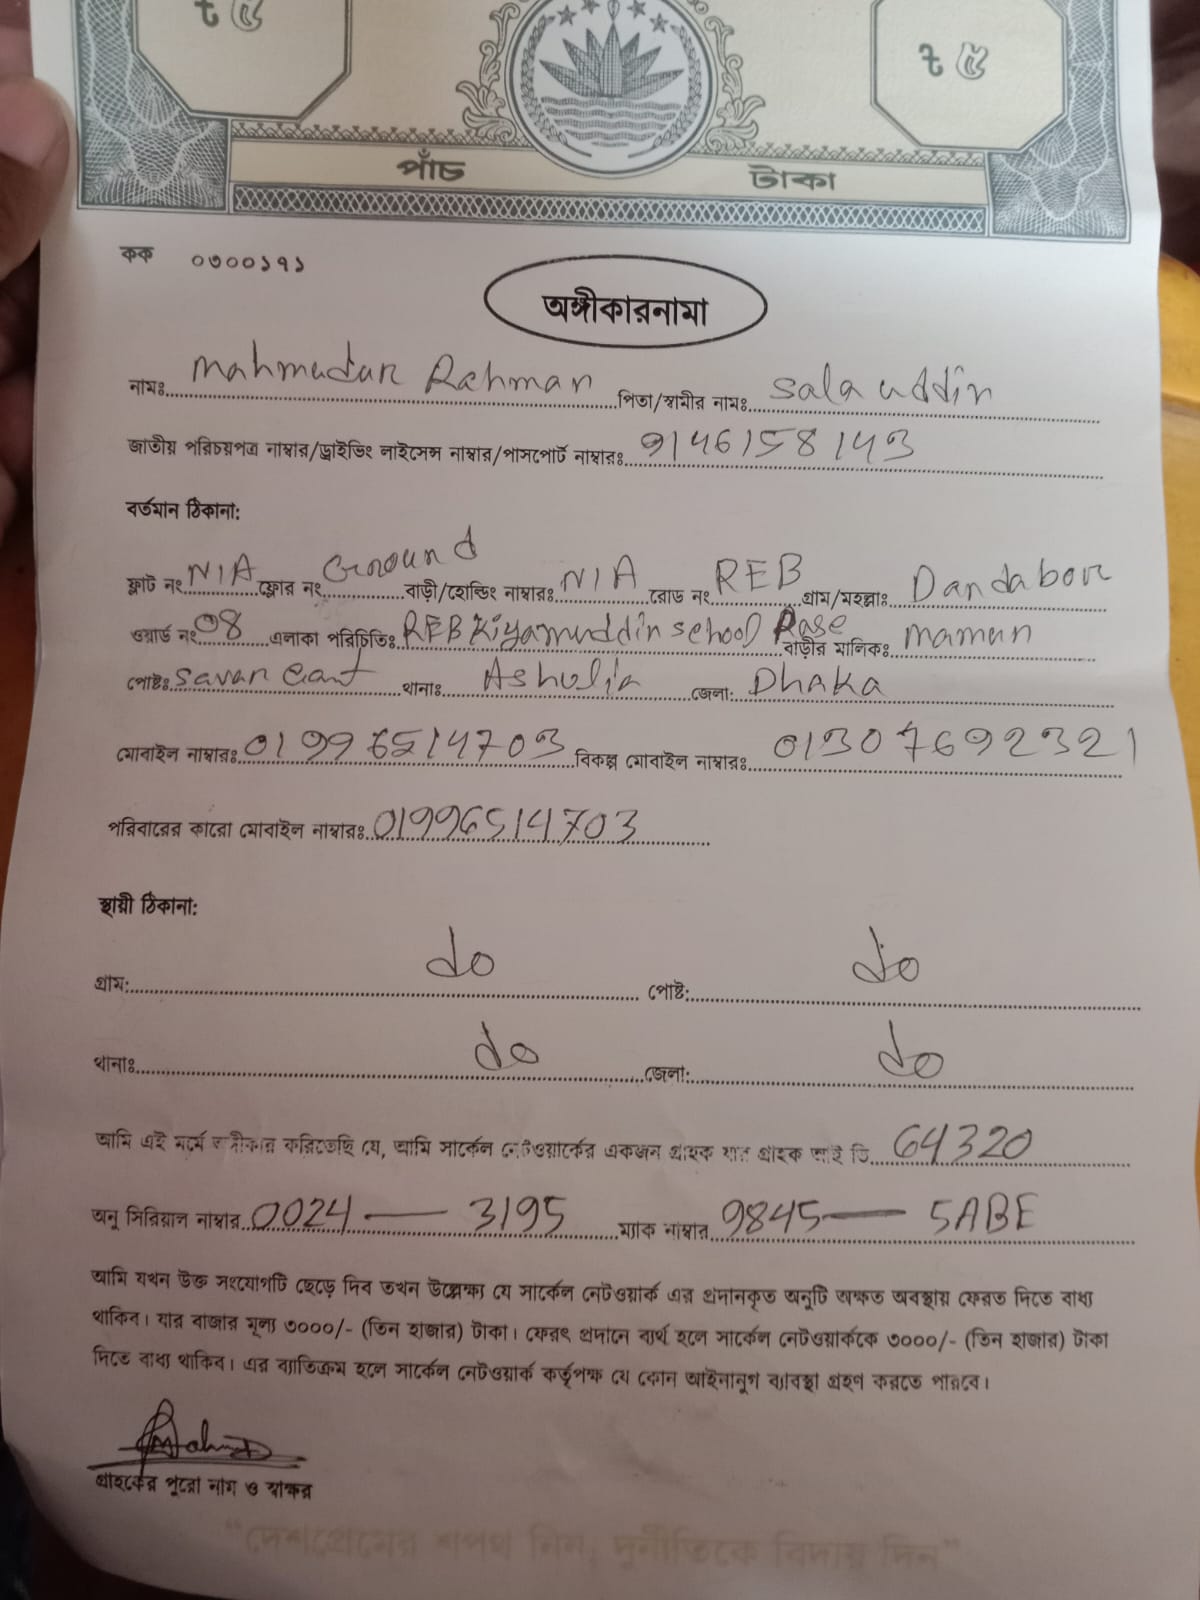 ৳ ৫ ৳ ৫
পাঁচ টাকা
কক ০৩০০১৭১
অঙ্গীকারনামা
নামঃ Mahmudur Rahman পিতা/স্বামীর নামঃ Sala uddin
জাতীয় পরিচয়পত্র নাম্বার/ড্রাইভিং লাইসেন্স নাম্বার/পাসপোর্ট নাম্বারঃ 9146158143
বর্তমান ঠিকানা:
ফ্লাট নং N/A ফ্লোর নং Ground বাড়ী/হোল্ডিং নাম্বারঃ N/A রোড নং REB গ্রাম/মহল্লাঃ Dandabor
ওয়ার্ড নং 08 এলাকা পরিচিতিঃ REB Kiyamuddin school Rose বাড়ীর মালিকঃ mamun
পোষ্টঃ Savar Cant থানাঃ Ashulia জেলা: Dhaka
মোবাইল নাম্বারঃ 01996514703 বিকল্প মোবাইল নাম্বারঃ 01307692321
পরিবারের কারো মোবাইল নাম্বারঃ 01996514703
স্থায়ী ঠিকানা:
গ্রাম: do পোষ্ট: do
থানাঃ do জেলা: do
আমি এই মর্মে অঙ্গীকার করিতেছি যে, আমি সার্কেল নেটওয়ার্কের একজন গ্রাহক যার গ্রাহক আই ডি 64320
অনু সিরিয়াল নাম্বার 0024 — 3195 ম্যাক নাম্বার 9845 — 5ABE
আমি যখন উক্ত সংযোগটি ছেড়ে দিব তখন উল্লেক্ষ্য যে সার্কেল নেটওয়ার্ক এর প্রদানকৃত অনুটি অক্ষত অবস্থায় ফেরত দিতে বাধ্য
থাকিব। যার বাজার মূল্য ৩০০০/- (তিন হাজার) টাকা। ফেরৎ প্রদানে ব্যর্থ হলে সার্কেল নেটওয়ার্ককে ৩০০০/- (তিন হাজার) টাকা
দিতে বাধ্য থাকিব। এর ব্যাতিক্রম হলে সার্কেল নেটওয়ার্ক কর্তৃপক্ষ যে কোন আইনানুগ ব্যাবস্থা গ্রহণ করতে পারবে।
Mahmud
গ্রাহকের পুরো নাম ও স্বাক্ষর
“দেশপ্রেমের শপথ নিন, দুর্নীতিকে বিদায় দিন”